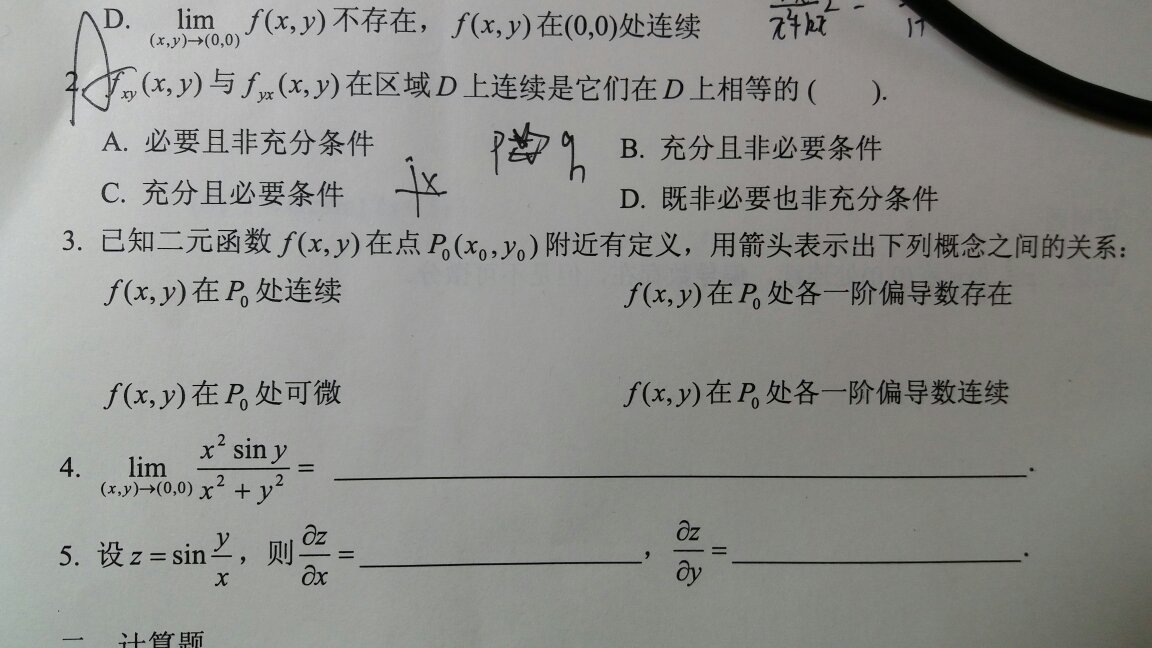 D. lim f(x,y)不存在，f(x,y)在(0,0)处连续
(x,y)→(0,0)
2. f_xy(x,y)与f_yx(x,y)在区域D上连续是它们在D上相等的(　　).
A. 必要且非充分条件　B. 充分且非必要条件
C. 充分且必要条件　D. 既非必要也非充分条件
3. 已知二元函数f(x,y)在点P₀(x₀,y₀)附近有定义，用箭头表示出下列概念之间的关系：
f(x,y)在P₀处连续　f(x,y)在P₀处各一阶偏导数存在
f(x,y)在P₀处可微　f(x,y)在P₀处各一阶偏导数连续
4. lim_{(x,y)→(0,0)} (x² sin y)/(x² + y²) = ________.
5. 设z = sin y/x，则∂z/∂x = ________，∂z/∂y = ________.
二　计算题